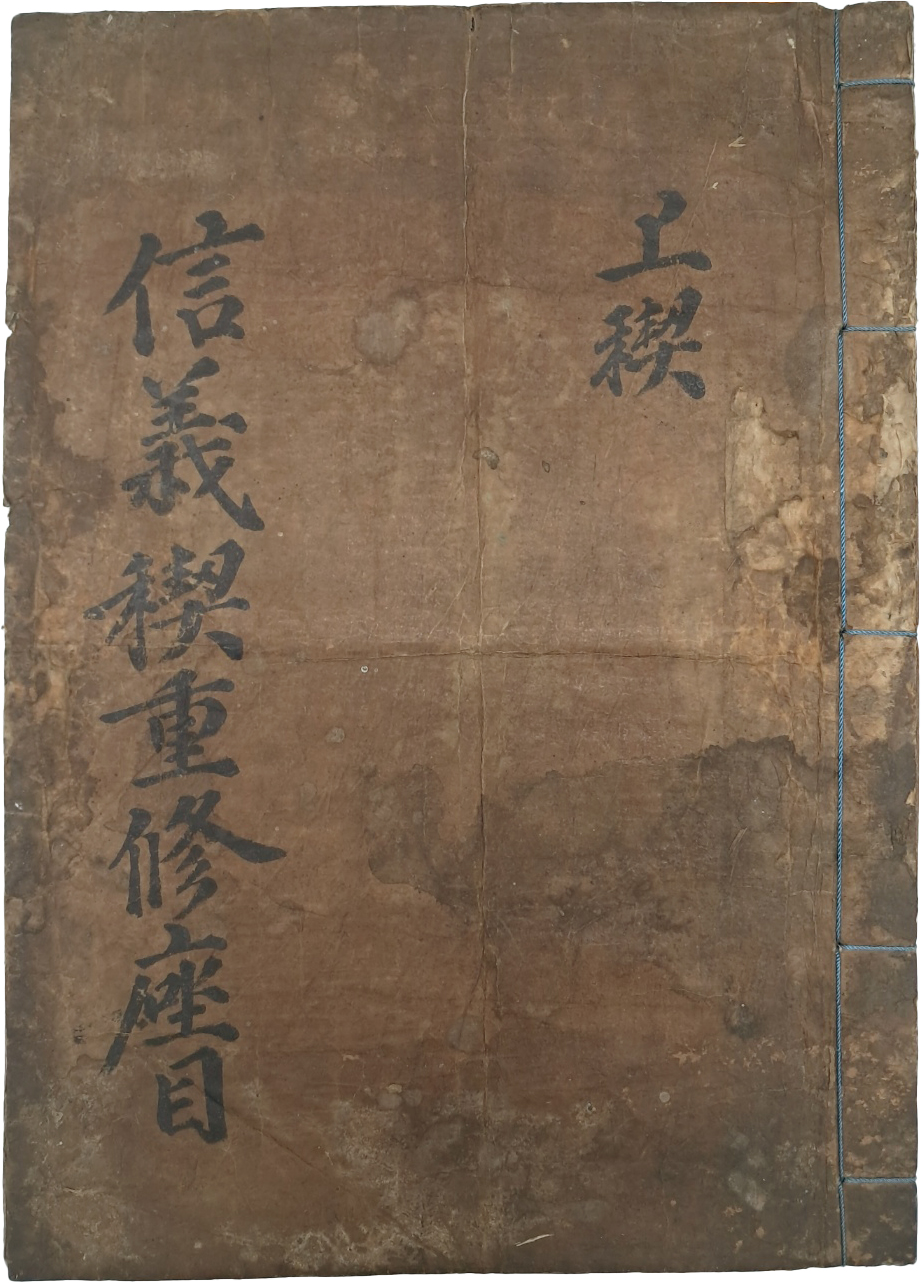 上稧
信義稧重修座目